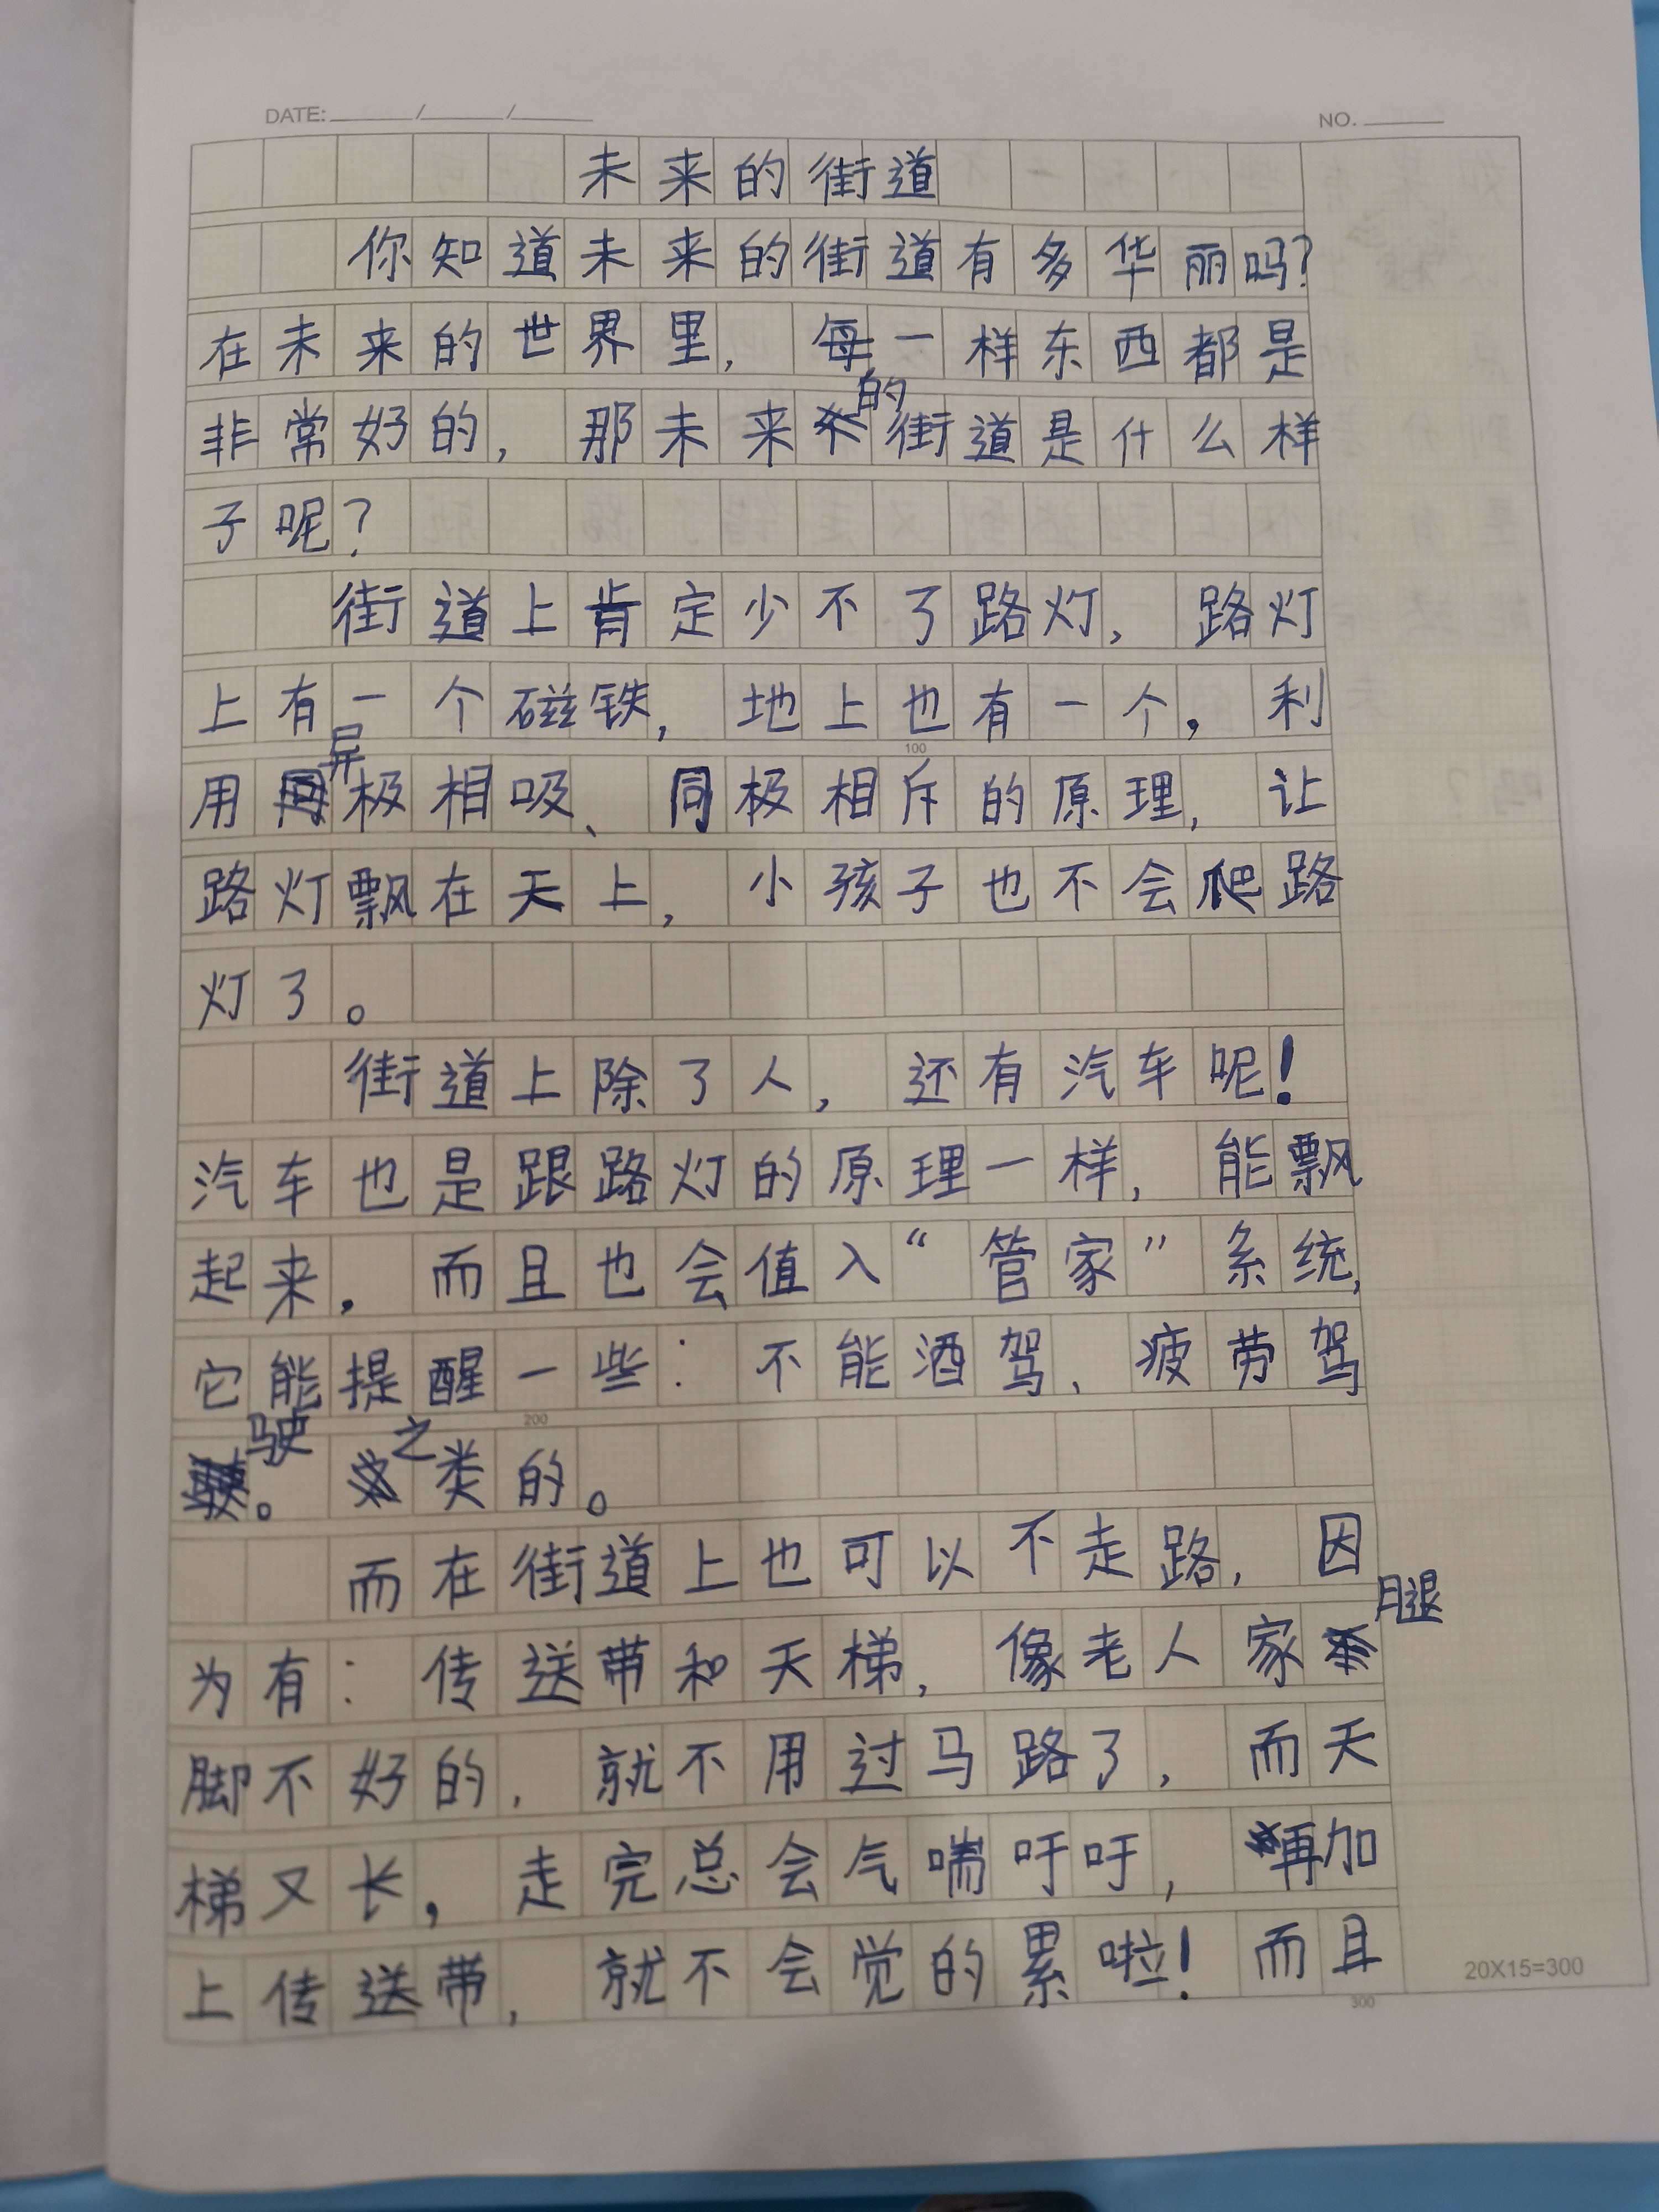 DATE: ____/____/____ NO. ____
未来的街道
你知道未来的街道有多华丽吗?
在未来的世界里，每一样东西都是
非常好的，那未来的街道是什么样
子呢?
街道上肯定少不了路灯，路灯
上有一个磁铁，地上也有一个，利
100
用异极相吸、同极相斥的原理，让
路灯飘在天上，小孩子也不会爬路
灯了。
街道上除了人，还有汽车呢!
汽车也是跟路灯的原理一样，能飘
起来，而且也会值入“管家”系统，
它能提醒一些：不能酒驾、疲劳驾
200
驶。之类的。
而在街道上也可以不走路，因
为有：传送带和天梯，像老人家腿
脚不好的，就不用过马路了，而天
梯又长，走完总会气喘吁吁，再加
上传送带，就不会觉的累啦!而且
20X15=300
300